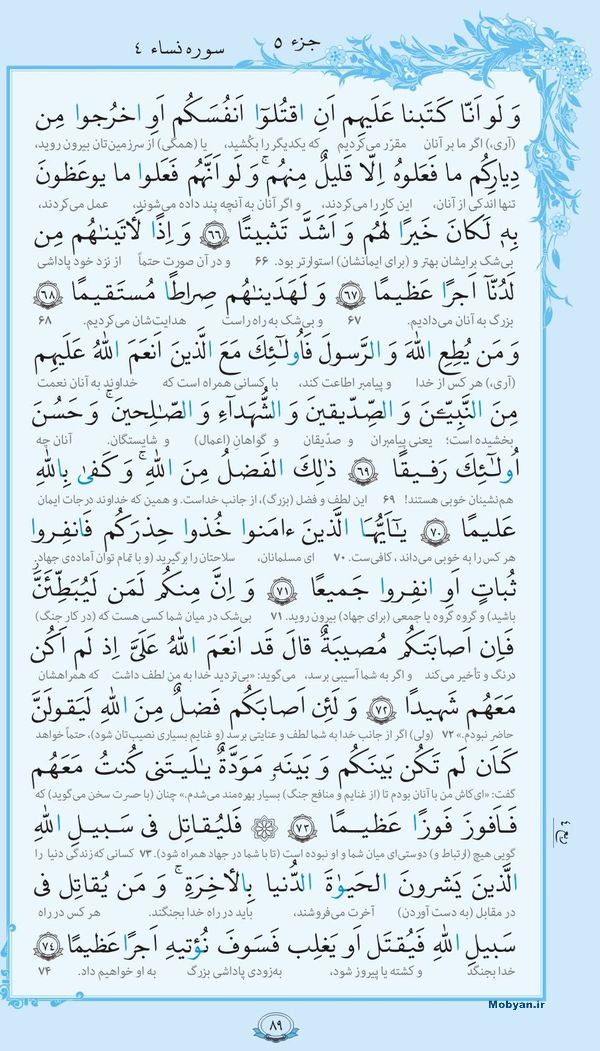 جزء ۵
سوره نساء ۴
وَ لَو اَنّا كَتَبنا عَلَيهِم اَنِ اقتُلوٓا اَنفُسَكُم اَوِ اخرُجوا مِن
(آری،) اگر ما بر آنان مقرّر می‌کردیم که یکدیگر را بکُشید، یا (همگی) از سرزمین‌تان بیرون روید،
دِيارِكُم ما فَعَلوهُ اِلّا قَليلٌ مِنهُم ۖ وَ لَو اَنَّهُم فَعَلوا ما يوعَظونَ
تنها اندکی از آنان، این کار را می‌کردند، و اگر آنان به آنچه پند داده می‌شوند، عمل می‌کردند،
بِهٖ لَكانَ خَيرًا لَهُم وَ اَشَدَّ تَثبيتًا ﴿۶۶﴾ وَ اِذًا لَأٓتَينٰهُم مِن
بی‌شک برایشان بهتر و (برای ایمانشان) استوارتر بود. ۶۶ و در آن صورت حتماً از نزد خود پاداشی
لَدُنّآ اَجرًا عَظيمًا ﴿۶۷﴾ وَ لَهَدَينٰهُم صِراطًا مُستَقيمًا ﴿۶۸﴾
بزرگ به آنان می‌دادیم. ۶۷ و بی‌شک به راه راست هدایت‌شان می‌کردیم. ۶۸
وَ مَن يُطِعِ اللّٰهَ وَ الرَّسولَ فَاُولٰٓئِكَ مَعَ الَّذينَ اَنعَمَ اللّٰهُ عَلَيهِم
(آری،) هر کس از خدا و پیامبر اطاعت کند، با کسانی همراه است که خداوند به آنان نعمت
مِنَ النَّبِيّٖنَ وَ الصِّدّيقينَ وَ الشُّهَدآءِ وَ الصّٰلِحينَ ۚ وَ حَسُنَ
بخشیده است؛ یعنی پیامبران و صدّیقان و گواهان (اعمال) و شایستگان. آنان چه
اُولٰٓئِكَ رَفيقًا ﴿۶۹﴾ ذٰلِكَ الفَضلُ مِنَ اللّٰهِ ۚ وَ كَفىٰ بِاللّٰهِ
هم‌نشینان خوبی هستند! ۶۹ این لطف و فضل (بزرگ)، از جانب خداست. و همین که خداوند درجات ایمان
عَليمًا ﴿۷۰﴾ يٰٓاَيُّهَا الَّذينَ ءامَنوا خُذوا حِذرَكُم فَانفِروا
هر کس را به خوبی می‌داند، کافی‌ست. ۷۰ ای مسلمانان، سلاحتان را برگیرید (و با تمام توان آماده‌ی جهاد
ثُباتٍ اَوِ انفِروا جَميعًا ﴿۷۱﴾ وَ اِنَّ مِنكُم لَمَن لَيُبَطِّئَنَّ
باشید) و گروه گروه یا جمعی (برای جهاد) بیرون روید. ۷۱ بی‌شک در میان شما کسی هست که (در کار جنگ)
فَاِن اَصابَتكُم مُصيبَةٌ قالَ قَد اَنعَمَ اللّٰهُ عَلَيَّ اِذ لَم اَكُن
درنگ و تأخیر می‌کند و اگر به شما آسیبی برسد، می‌گوید: «بی‌تردید خدا به من لطف داشت که همراهشان
مَعَهُم شَهيدًا ﴿۷۲﴾ وَ لَئِن اَصابَكُم فَضلٌ مِنَ اللّٰهِ لَيَقولَنَّ
حاضر نبودم.» ۷۲ (ولی) اگر از جانب خدا به شما لطف و عنایتی برسد (و غنایم بسیاری نصیب‌تان شود)، حتماً خواهد
كَاَن لَم تَكُن بَينَكُم وَ بَينَهٗ مَوَدَّةٌ يٰلَيتَني كُنتُ مَعَهُم
گفت: «ای‌کاش من با آنان بودم تا (از غنایم و منافع جنگ) بسیار بهره‌مند می‌شدم.» چنان (با حسرت سخن می‌گوید) که
فَاَفوزَ فَوزًا عَظيمًا ﴿۷۳﴾ ۞ فَليُقاتِل في سَبيلِ اللّٰهِ
گویی هیچ (ارتباط و) دوستی‌ای میان شما و او نبوده است (تا با شما در جهاد همراه شود). ۷۳ کسانی که زندگی دنیا را
الَّذينَ يَشرونَ الحَيوٰةَ الدُّنيا بِالأٰخِرَةِ ۚ وَ مَن يُقاتِل في
در مقابل (به دست آوردن) آخرت می‌فروشند، باید در راه خدا بجنگند. هر کس در راه
سَبيلِ اللّٰهِ فَيُقتَل اَو يَغلِب فَسَوفَ نُؤتيهِ اَجرًا عَظيمًا ﴿۷۴﴾
خدا بجنگد و کشته یا پیروز شود، به‌زودی پاداشی بزرگ به او خواهیم داد. ۷۴
Mobyan.ir
۸۹